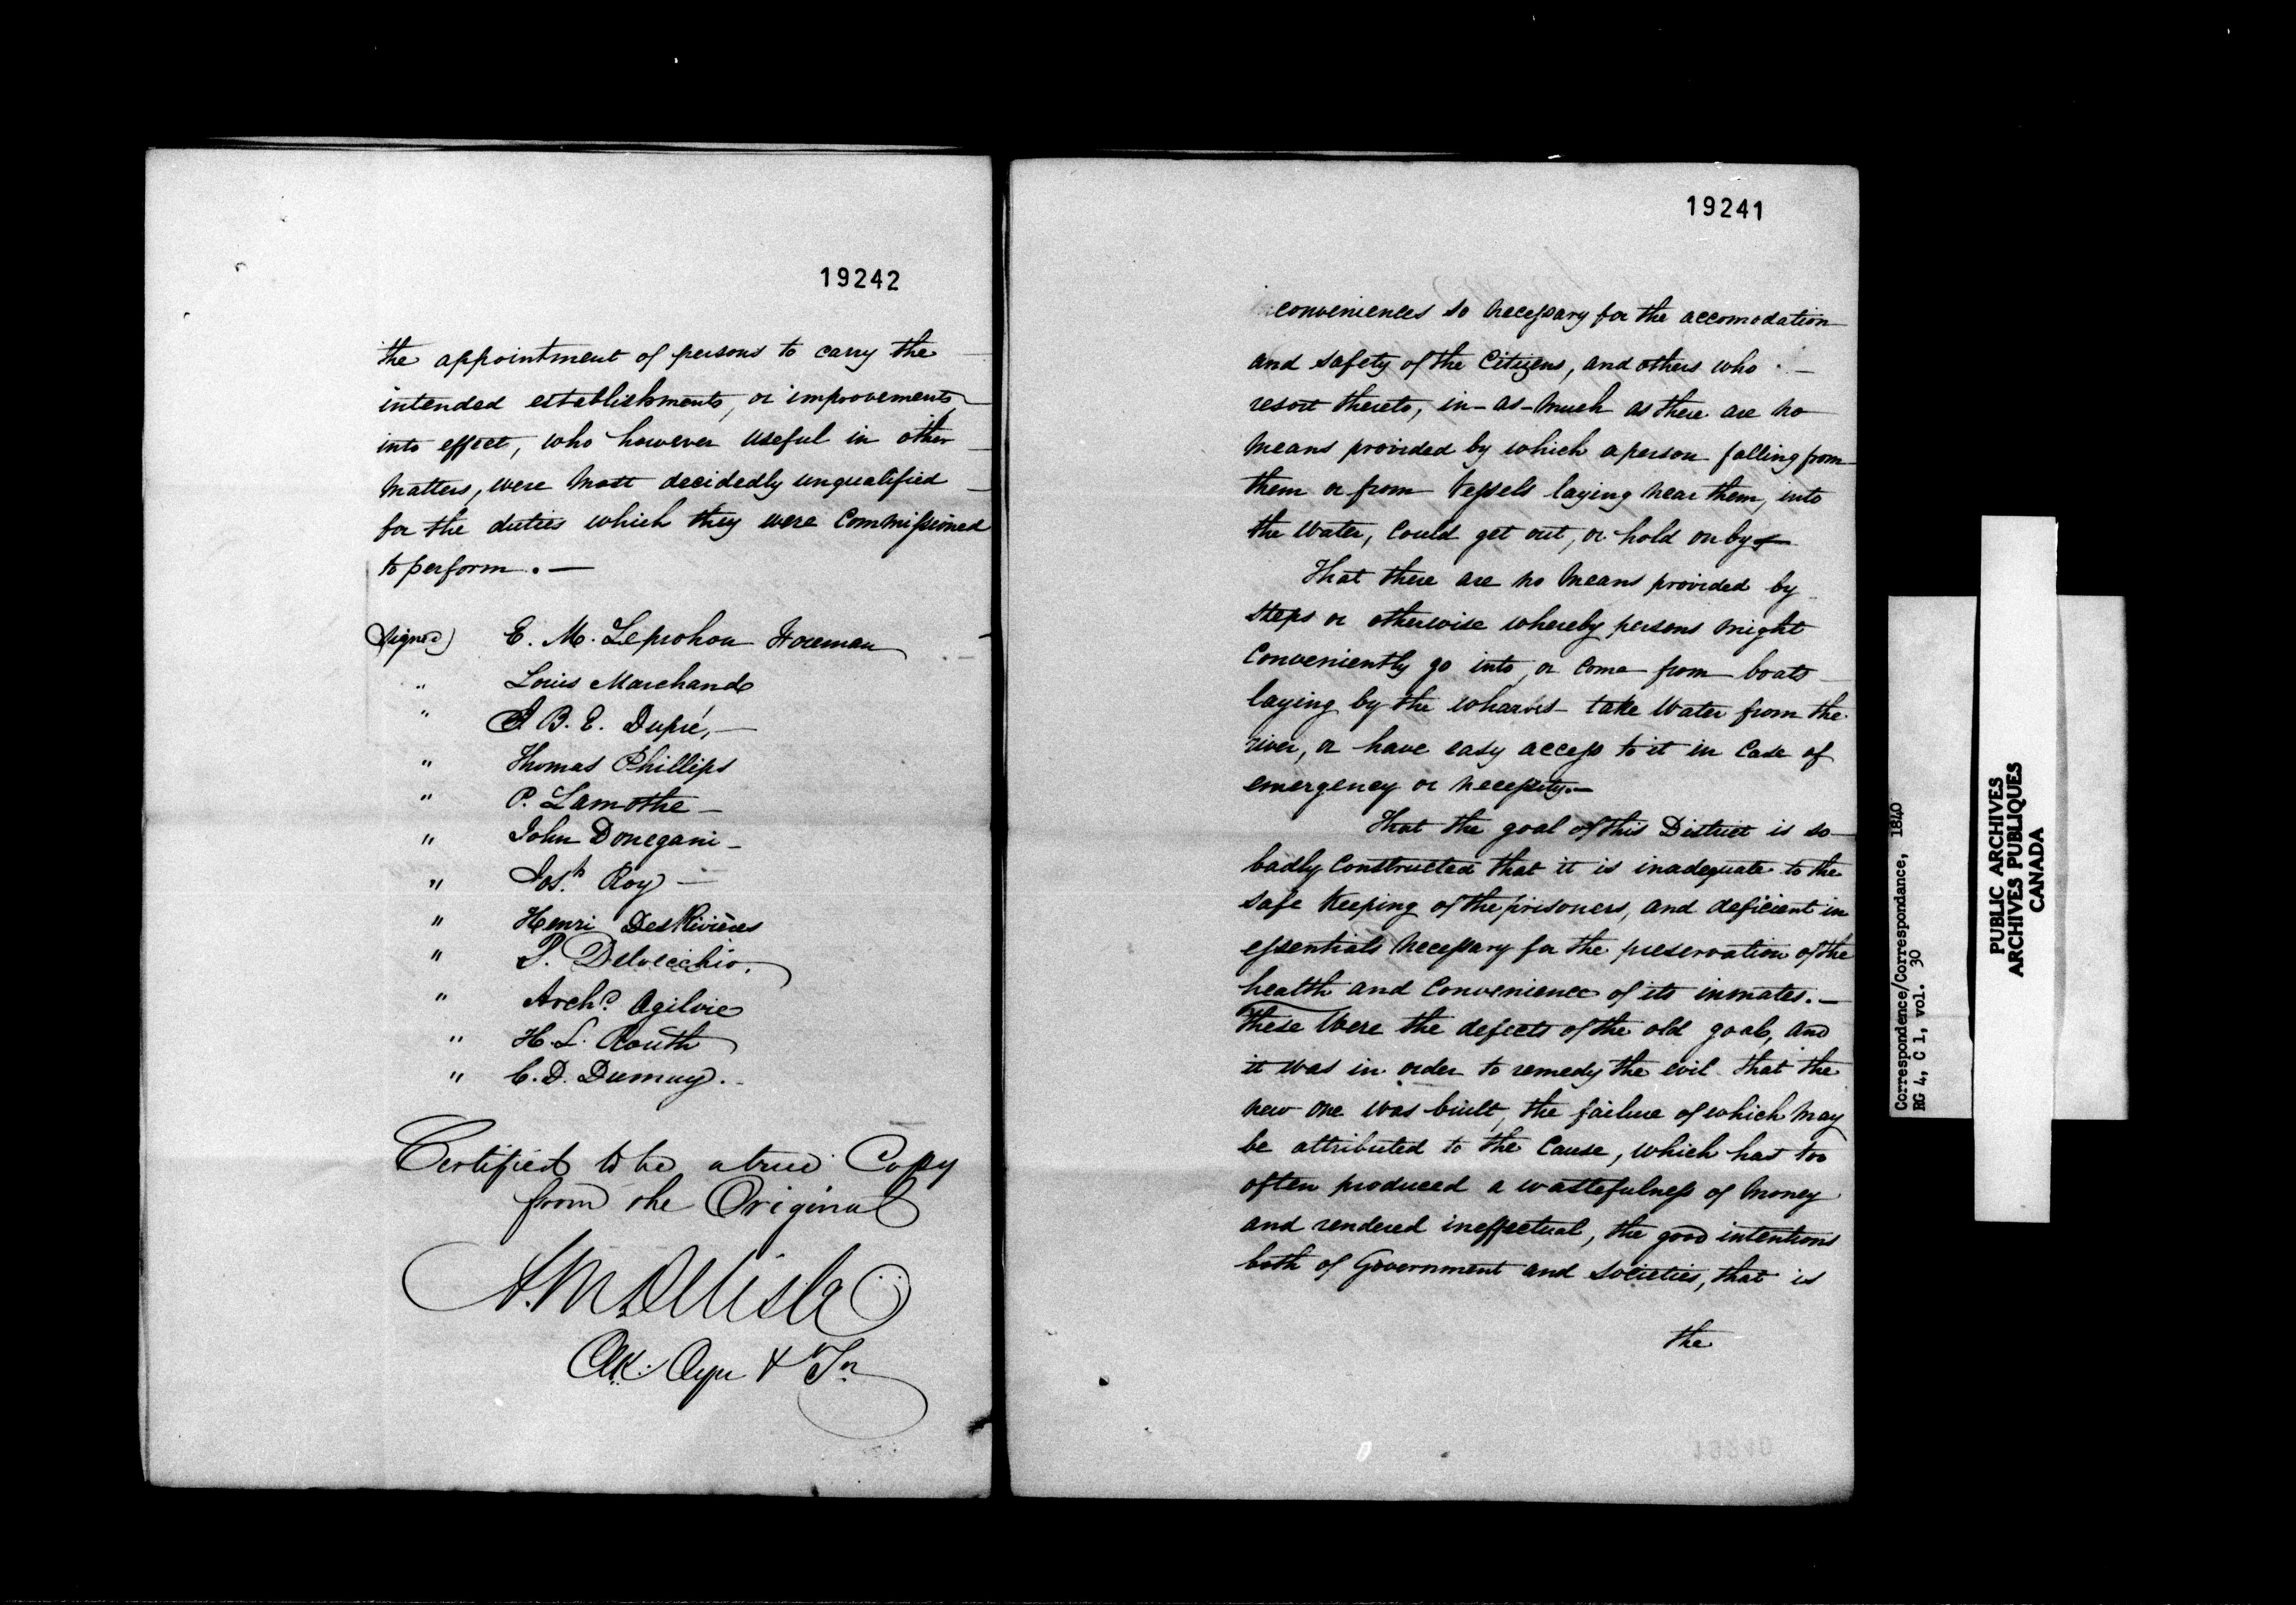 19242
the appointment of persons to carry the
intended establishments, or improvements
into effect, who however useful in other
matters, were most decidedly unqualified
for the duties which they were Commissioned
to perform. —
(Signed) E. M. Leprohon Foreman
" Louis Marchand
" J B. E. Dupré, —
" Thomas Phillips
" P. Lamothe —
" John Donegani —
" Jos.h Roy —
" Henri DesRivières
" P. Delvecchio,
" Arch.d Ogilvie
" H. L. Routh
" C. D.
Certified to be a true Copy
from the Original
A. M. Delisle
Clk.
19241
inconveniences so necessary for the accomodation
and safety of the Citizens, and others who —
resort thereto, in-as-much as there are no
means provided by which a person falling from
them or from Vessels laying near them, into
the Water, could get out, or hold on by
That there are no means provided by
steps or otherwise whereby persons might
Conveniently go into, or Come from boats
laying by the wharves take Water from the
river, or have easy access to it in Case of
emergency or necessity. —
That the goal of this District is so
badly Constructed that it is inadequate to the
safe Keeping of the prisoners, and deficient in
essentials necessary for the preservation of the
health and Convenience of its inmates. —
these Were the defects of the old goal, and
it was in order to remedy the evil that the
new one was built, the failure of which may
be attributed to the Cause, which has too
often produced a wastefulness of money
and rendered ineffectual, the good intentions
both of Government and Societies, that is
the
Correspondence/Correspondance, 1840
RG 4, C 1, vol. 30
PUBLIC ARCHIVES
ARCHIVES PUBLIQUES
CANADA